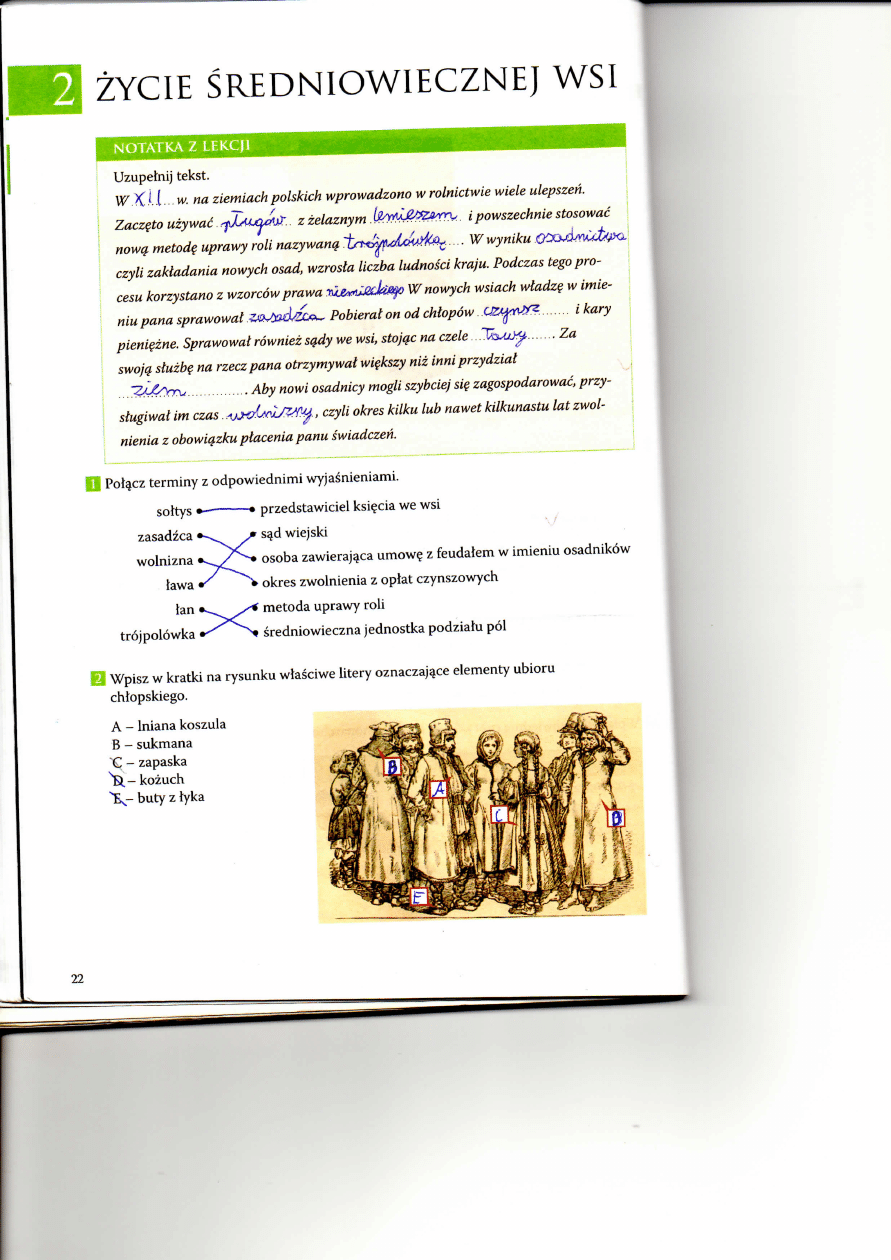 2 ŻYCIE ŚREDNIOWIECZNEJ WSI
NOTATKA Z LEKCJI
Uzupełnij tekst.
W XII w. na ziemiach polskich wprowadzono w rolnictwie wiele ulepszeń.
Zaczęto używać pługów z żelaznym lemieszem i powszechnie stosować
nową metodę uprawy roli nazywaną trójpolówką. W wyniku osadnictwa
czyli zakładania nowych osad, wzrosła liczba ludności kraju. Podczas tego pro-
cesu korzystano z wzorców prawa niemieckiego W nowych wsiach władzę w imie-
niu pana sprawował zasadźca Pobierał on od chłopów czynsz i kary
pieniężne. Sprawował również sądy we wsi, stojąc na czele ławy. Za
swoją służbę na rzecz pana otrzymywał większy niż inni przydział
ziem. Aby nowi osadnicy mogli szybciej się zagospodarować, przy-
sługiwał im czas wolnizny, czyli okres kilku lub nawet kilkunastu lat zwol-
nienia z obowiązku płacenia panu świadczeń.
1 Połącz terminy z odpowiednimi wyjaśnieniami.
sołtys przedstawiciel księcia we wsi
zasadźca sąd wiejski
wolnizna osoba zawierająca umowę z feudałem w imieniu osadników
ława okres zwolnienia z opłat czynszowych
łan metoda uprawy roli
trójpolówka średniowieczna jednostka podziału pól
2 Wpisz w kratki na rysunku właściwe litery oznaczające elementy ubioru
chłopskiego.
A – lniana koszula
B – sukmana
C – zapaska
D – kożuch
E – buty z łyka
B
A
C
E
22